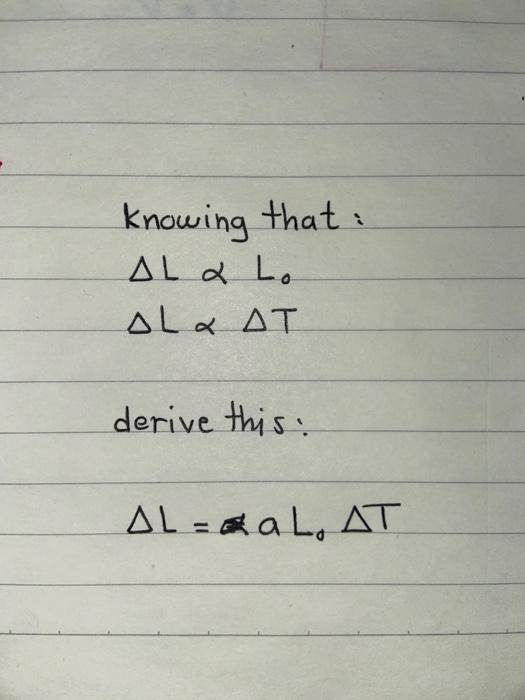 knowing that :
ΔL α L₀
ΔL α ΔT
derive this :
ΔL = a L₀ ΔT